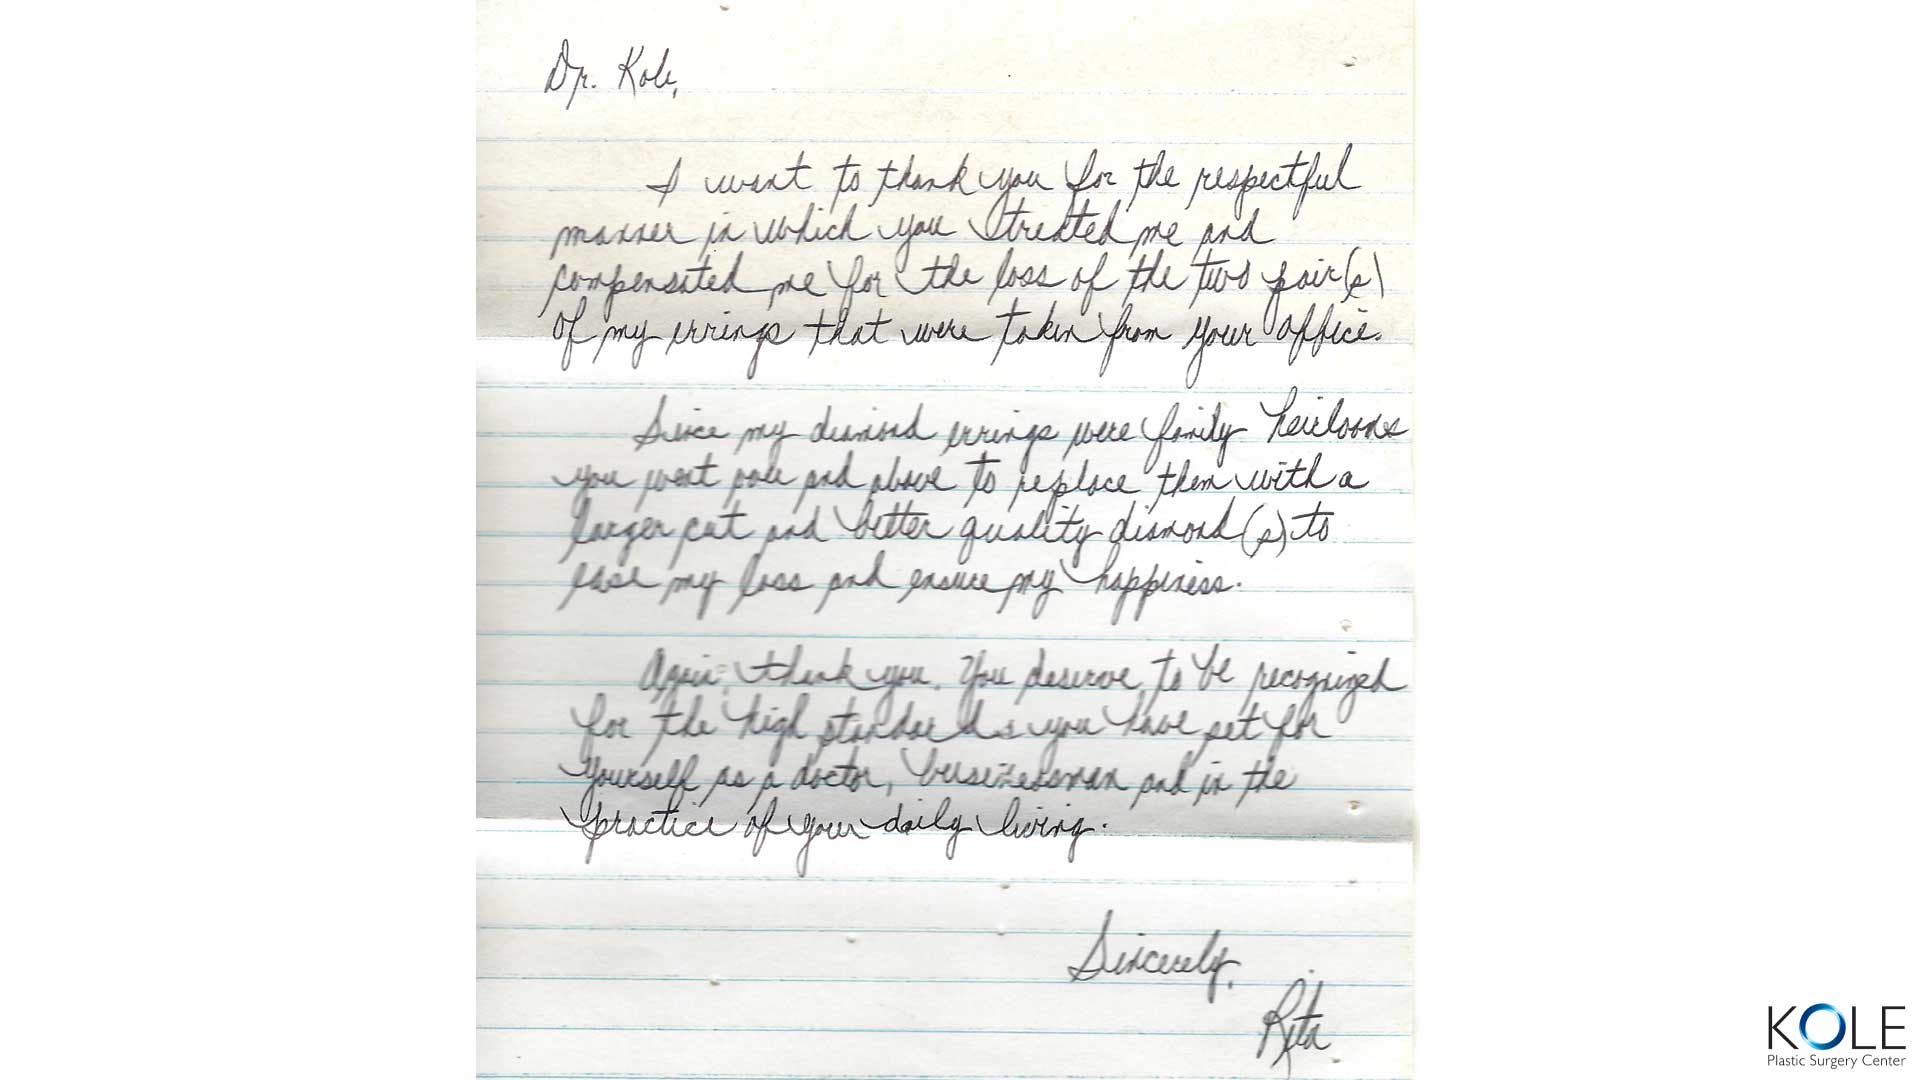 Dr. Kole,
I want to thank you for the respectful
manner in which you treated me and
compensated me for the loss of the two pair(s)
of my errings that were taken from your office.
Since my diamond errings were family heirlooms
you went over and above to replace them with a
larger cut and better quality diamond(s) to
ease my loss and ensure my happiness.
Again, thank you. You deserve to be recognized
for the high standards you have set for
yourself as a doctor, businessman and in the
practice of your daily living.
Sincerely,
Rita
KOLE
Plastic Surgery Center